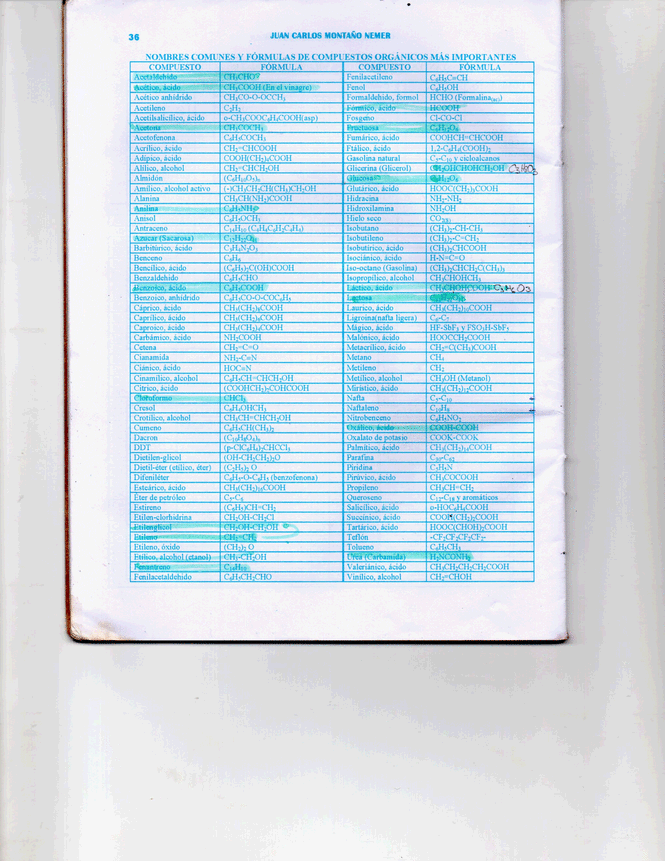 36 JUAN CARLOS MONTAÑO NEMER
NOMBRES COMUNES Y FÓRMULAS DE COMPUESTOS ORGÁNICOS MÁS IMPORTANTES
COMPUESTO FÓRMULA COMPUESTO FÓRMULA
Acetaldehido CH₃CHO Fenilacetileno C₆H₅C≡CH
Acético, ácido CH₃COOH (En el vinagre) Fenol C₆H₅OH
Acético anhidrido CH₃CO-O-OCCH₃ Formaldehido, formol HCHO (Formalina(ac))
Acetileno C₂H₂ Fórmico, ácido HCOOH
Acetilsalicílico, ácido o-CH₃COOC₆H₄COOH(asp) Fosgeno Cl-CO-Cl
Acetona CH₃COCH₃ Fructuosa C₆H₁₂O₆
Acetofenona C₆H₅COCH₃ Fumárico, ácido COOHCH=CHCOOH
Acrílico, ácido CH₂=CHCOOH Ftálico, ácido 1,2-C₆H₄(COOH)₂
Adípico, ácido COOH(CH₂)₄COOH Gasolina natural C₅-C₁₀ y cicloalcanos
Alílico, alcohol CH₂=CHCH₂OH Glicerina (Glicerol) CH₂OHCHOHCH₂OH
Almidón (C₆H₁₀O₅)ₙ Glucosa C₆H₁₂O₆
Amílico, alcohol activo (-)CH₃CH₂CH(CH₃)CH₂OH Glutárico, ácido HOOC(CH₂)₃COOH
Alanina CH₃CH(NH₂)COOH Hidracina NH₂-NH₂
Anilina C₆H₅NH₂ Hidroxilamina NH₂OH
Anisol C₆H₅OCH₃ Hielo seco CO₂₍ₛ₎
Antraceno C₁₄H₁₀ (C₆H₄C₂H₂C₆H₄) Isobutano (CH₃)₂-CH-CH₃
Azucar (Sacarosa) C₁₂H₂₂O₁₁ Isobutileno (CH₃)₂-C=CH₂
Barbitúrico, ácido C₄H₄N₂O₃ Isobutírico, ácido (CH₃)₂CHCOOH
Benceno C₆H₆ Isociánico, ácido H-N=C=O
Bencílico, ácido (C₆H₅)₂C(OH)COOH Iso-octano (Gasolina) (CH₃)₂CHCH₂C(CH₃)₃
Benzaldehido C₆H₅CHO Isopropílico, alcohol CH₃CHOHCH₃
Benzoico, ácido C₆H₅COOH Láctico, ácido CH₃CHOHCOOH C₃H₆O₃
Benzoico, anhidrido C₆H₅CO-O-COC₆H₅ Lactosa
Cáprico, ácido CH₃(CH₂)₈COOH Laurico, ácido CH₃(CH₂)₁₀COOH
Caprílico, ácido CH₃(CH₂)₆COOH Ligroina(nafta ligera) C₆-C₇
Caproico, ácido CH₃(CH₂)₄COOH Mágico, ácido HF-SbF₅ y FSO₃H-SbF₅
Carbámico, ácido NH₂COOH Malónico, ácido HOOCCH₂COOH
Cetena CH₂=C=O Metacrílico, ácido CH₂=C(CH₃)COOH
Cianamida NH₂-C≡N Metano CH₄
Ciánico, ácido HOC≡N Metileno CH₂
Cinamílico, alcohol C₆H₅CH=CHCH₂OH Metílico, alcohol CH₃OH (Metanol)
Cítrico, ácido (COOHCH₂)₂COHCOOH Mirístico, ácido CH₃(CH₂)₁₂COOH
Cloroformo CHCl₃ Nafta C₅-C₁₀
Cresol C₆H₄OHCH₃ Naftaleno C₁₀H₈
Crotílico, alcohol CH₃CH=CHCH₂OH Nitrobenceno C₆H₅NO₂
Cumeno C₆H₅CH(CH₃)₂ Oxálico, ácido COOH-COOH
Dacron (C₁₀H₈O₄)ₙ Oxalato de potasio COOK-COOK
DDT (p-ClC₆H₄)₂CHCCl₃ Palmítico, ácido CH₃(CH₂)₁₄COOH
Dietilen-glicol (OH-CH₂CH₂)₂O Parafina
Dietil-éter (etílico, éter) (C₂H₅)₂ O Piridina C₅H₅N
Difeniléter C₆H₅-O-C₆H₅ (benzofenona) Pirúvico, ácido CH₃COCOOH
Esteárico, ácido CH₃(CH₂)₁₆COOH Propileno CH₃CH=CH₂
Éter de petróleo C₅-C₆ Queroseno C₁₂-C₁₈ y aromáticos
Estireno (C₆H₅)CH=CH₂ Salicílico, ácido o-HOC₆H₄COOH
Etilen-clorhidrina CH₂OH-CH₂Cl Succínico, ácido COOH(CH₂)₂COOH
Etilenglicol CH₂OH-CH₂OH Tartárico, ácido HOOC(CHOH)₂COOH
Etileno CH₂=CH₂ Teflón -CF₂CF₂CF₂CF₂-
Etileno, óxido (CH₂)₂ O Tolueno C₆H₅CH₃
Etílico, alcohol (etanol) CH₃-CH₂OH Urea (Carbamida) H₂NCONH₂
Fenantreno C₁₄H₁₀ Valeriánico, ácido CH₃CH₂CH₂CH₂COOH
Fenilacetaldehido C₆H₅CH₂CHO Vinílico, alcohol CH₂=CHOH